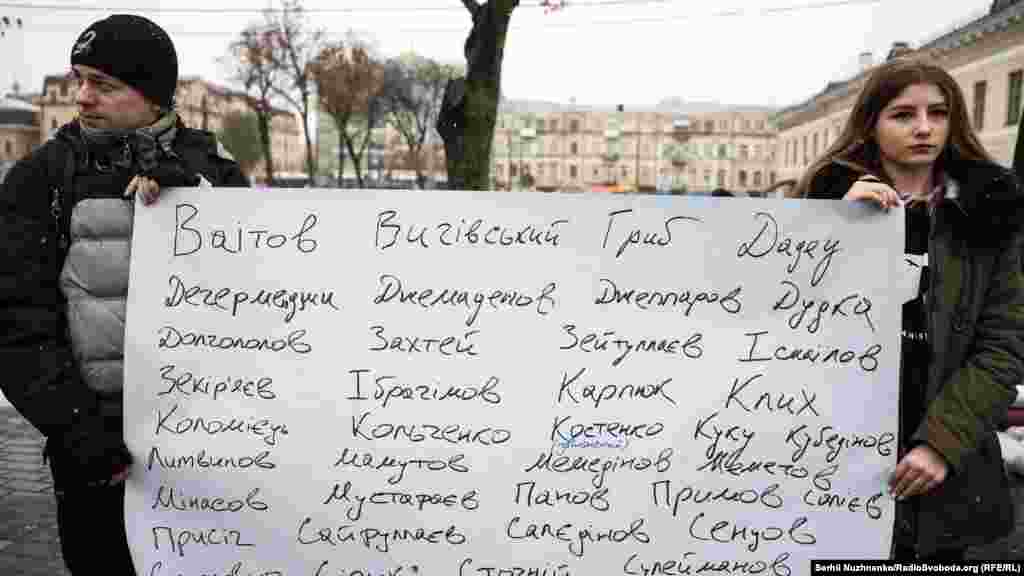 Ваітов Вигівський Гриб Дадеу
Дегермеджи Джемаденов Джеппаров Дудка
Долгополов Захтей Зейтуллаєв Ісмаїлов
Зекір'яєв Ібрагімов Карпюк Клих
Коломієць Кольченко Костенко Куку Кубедінов
Литвинов Мамутов Мемедінов Меметов
Мінасов Мустафаєв Панов Примов Салієв
Присіч Сайфуллаєв Салєдінов Сенцов
Стогній Сулейманов
Serhii Nuzhnenko/RadioSvoboda.org (RFE/RL)